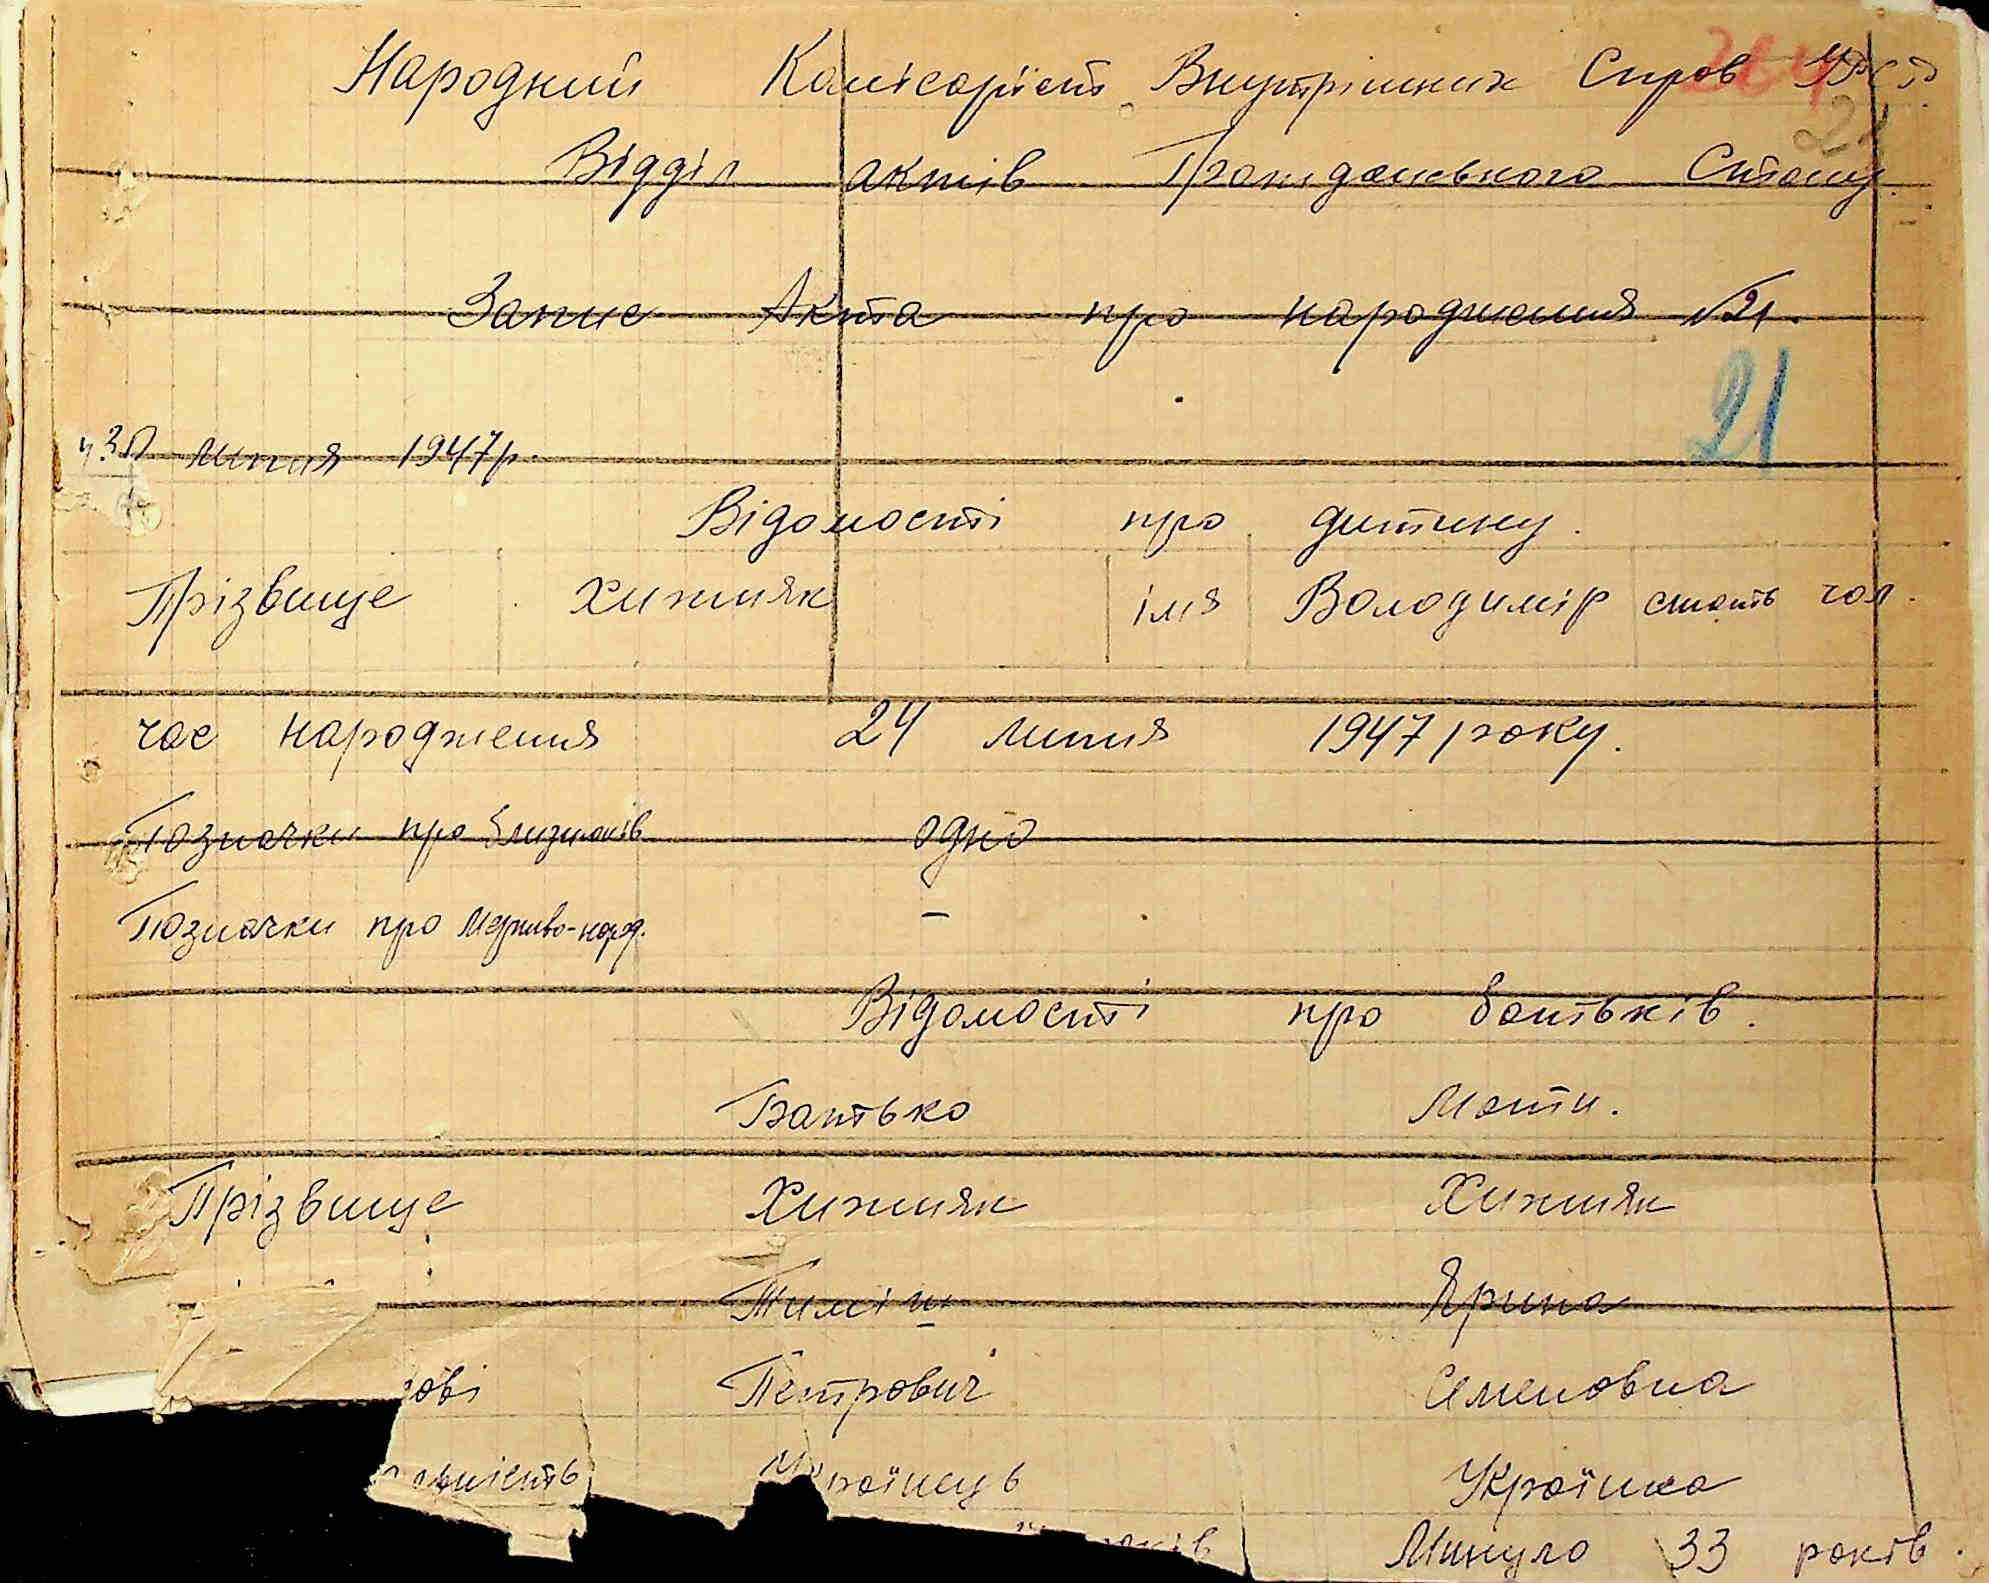 Народний Комісаріат Внутрішних Справ УРСР
21
Відділ актів Громадянського Стану.
Запис Акта про народження №21.
21
"30 липня 1947р.
Відомості про дитину.
Прізвище Хижняк імя Володимір стать чол.
час народження 24 липня 1947 року.
Позначки про близнюків одно
Позначки про мертво-народ. –
Відомості про батьків.
Батько Мати.
Прізвище Хижняк Хижняк
Тиміш Ярина
ові Петрович Семеновна
ність Українець Українка
років Минуло 33 років.